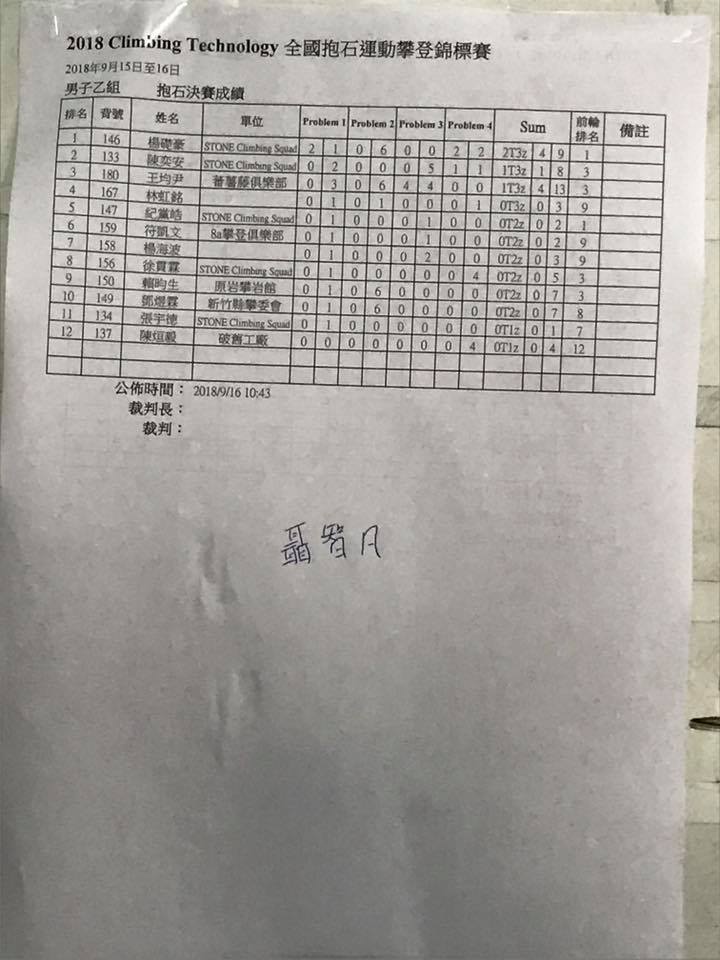 2018 Climbing Technology 全國抱石運動攀登錦標賽
2018年9月15日至16日
男子乙組 抱石決賽成績
排名 背號 姓名 單位 Problem 1 Problem 2 Problem 3 Problem 4 Sum 前輪排名 備註
1 146 楊礎豪 STONE Climbing Squad 2 1 0 6 0 0 2 2 2T3z 4 9 1
2 133 陳奕安 STONE Climbing Squad 0 2 0 0 0 5 1 1 1T3z 1 8 3
3 180 王均尹 蕃薯藤俱樂部 0 3 0 6 4 4 0 0 1T3z 4 13 3
4 167 林虹銘 0 1 0 1 0 0 0 1 0T3z 0 3 9
5 147 紀黨皓 STONE Climbing Squad 0 1 0 0 0 1 0 0 0T2z 0 2 1
6 159 符凱文 8a攀登俱樂部 0 1 0 0 0 1 0 0 0T2z 0 2 9
7 158 楊海波 0 1 0 0 0 2 0 0 0T2z 0 3 9
8 156 徐貫霖 STONE Climbing Squad 0 1 0 0 0 0 0 4 0T2z 0 5 3
9 150 賴昀生 原岩攀岩館 0 1 0 6 0 0 0 0 0T2z 0 7 3
10 149 鄧煜霖 新竹縣攀委會 0 1 0 6 0 0 0 0 0T2z 0 7 8
11 134 張宇德 STONE Climbing Squad 0 1 0 0 0 0 0 0 0T1z 0 1 7
12 137 陳烜毅 破舊工廠 0 0 0 0 0 0 0 4 0T1z 0 4 12
公佈時間：2018/9/16 10:43
裁判長：
裁判：
聶智凡